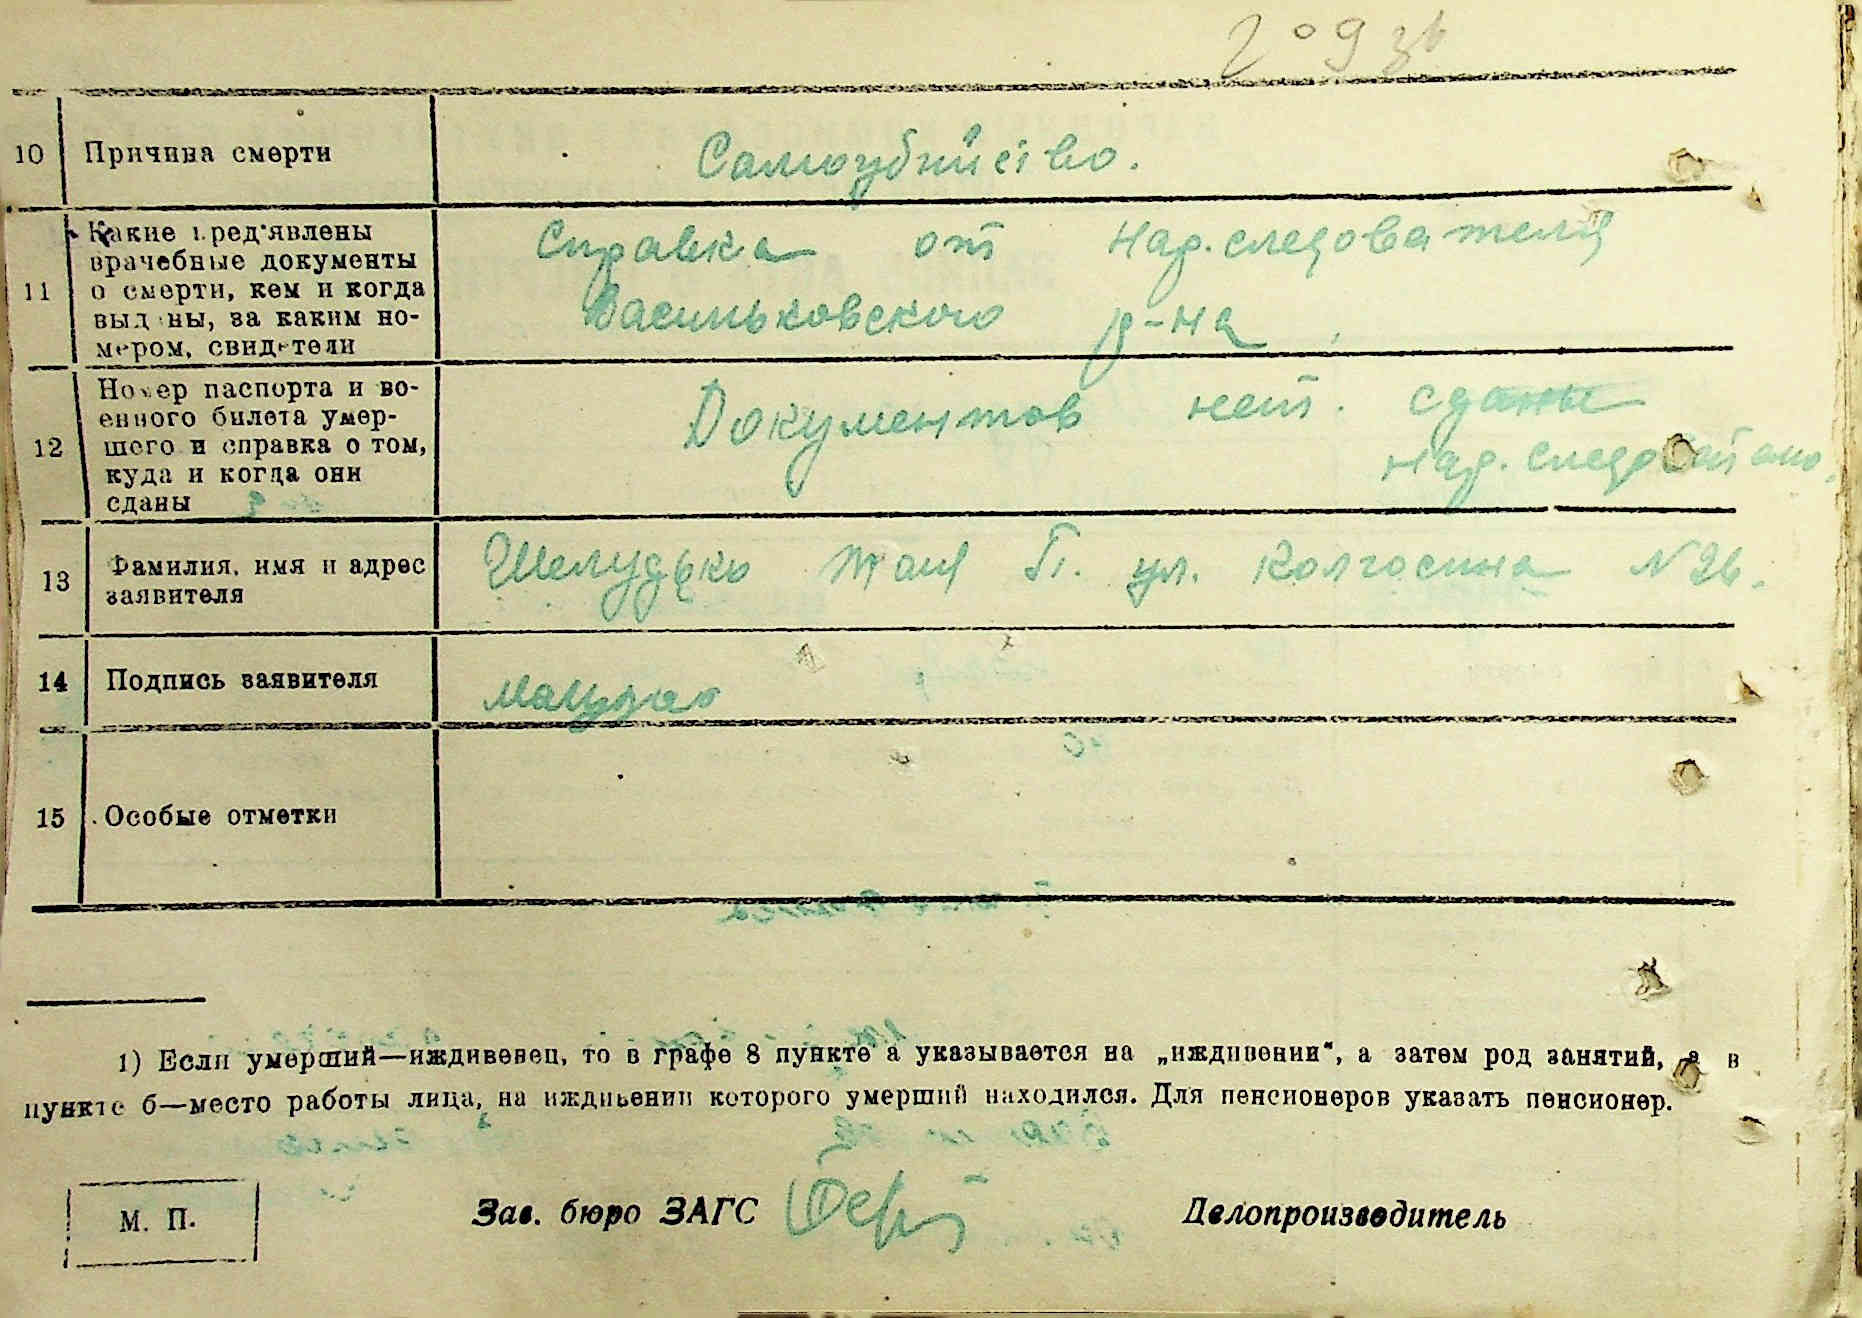 209 зв
10 Причина смерти Самоубийство.
11 Какие пред'явлены врачебные документы о смерти, кем и когда выданы, за каким номером, свидетели
Справка от нар. следователя
Васильковского р-на
12 Номер паспорта и военного билета умершего и справка о том, куда и когда они сданы
Документов нет. сданы
нар. следоват
13 Фамилия, имя и адрес заявителя
Шелудько П. ул. Колгоспна N 26.
14 Подпись заявителя
15 Особые отметки
1) Если умерший—иждивенец, то в графе 8 пункте а указывается на „иждивении“, а затем род занятий, а в
пункте б—место работы лица, на иждивении которого умерший находился. Для пенсионеров указать пенсионер.
М. П. Зав. бюро ЗАГС Делопроизводитель